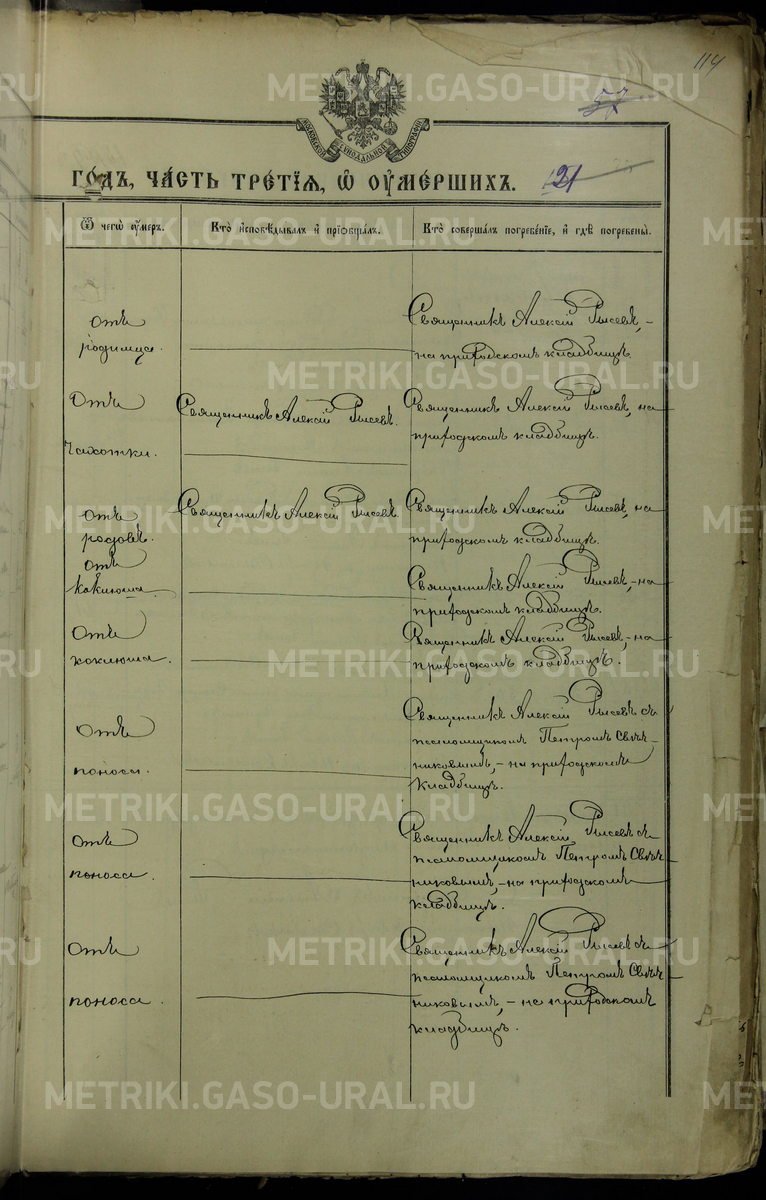 114
МОСКОВСКОЙ СѴНОДАЛЬНОЙ ТИПОГРАФІИ
ГО́ДЪ, ЧА́СТЬ ТРЕ́ТІѦ, Ѡ҆ ОУ҆МЕ́РШИХЪ. 21
Ѿ чегѡ̀ ᲂу҆́меръ.
Кто̀ и҆сповѣ́дывалъ и҆ прїѡбща́лъ.
Кто̀ соверша́лъ погребе́нїе, и҆ гдѣ̀ погребены̀.
Отъ
родимца.
Священникъ Алексій Рысевъ, –
на приходскомъ кладбищѣ.
Отъ
Чахотки.
Священникъ Алексій Рысевъ.
Священникъ Алексій Рысевъ, на
приходскомъ кладбищѣ.
Отъ
родовъ.
Священникъ Алексій Рысевъ.
Священникъ Алексій Рысевъ, на
приходскомъ кладбищѣ.
Отъ
каклюша.
Священникъ Алексій Рысевъ, – на
приходскомъ кладбищѣ.
Отъ
коклюша.
Священникъ Алексій Рысевъ, – на
приходскомъ кладбищѣ.
Отъ
поноса.
Священникъ Алексій Рысевъ съ
псаломщикомъ Петромъ Свѣч–
никовымъ, – на приходскомъ
кладбищѣ.
Отъ
поноса.
Священникъ Алексій Рысевъ съ
псаломщикомъ Петромъ Свѣч–
никовымъ, – на приходскомъ
кладбищѣ.
Отъ
поноса.
Священникъ Алексій Рысевъ съ
псаломщикомъ Петромъ Свѣч–
никовымъ, – на приходскомъ
кладбищѣ.
METRIKI.GASO-URAL.RU